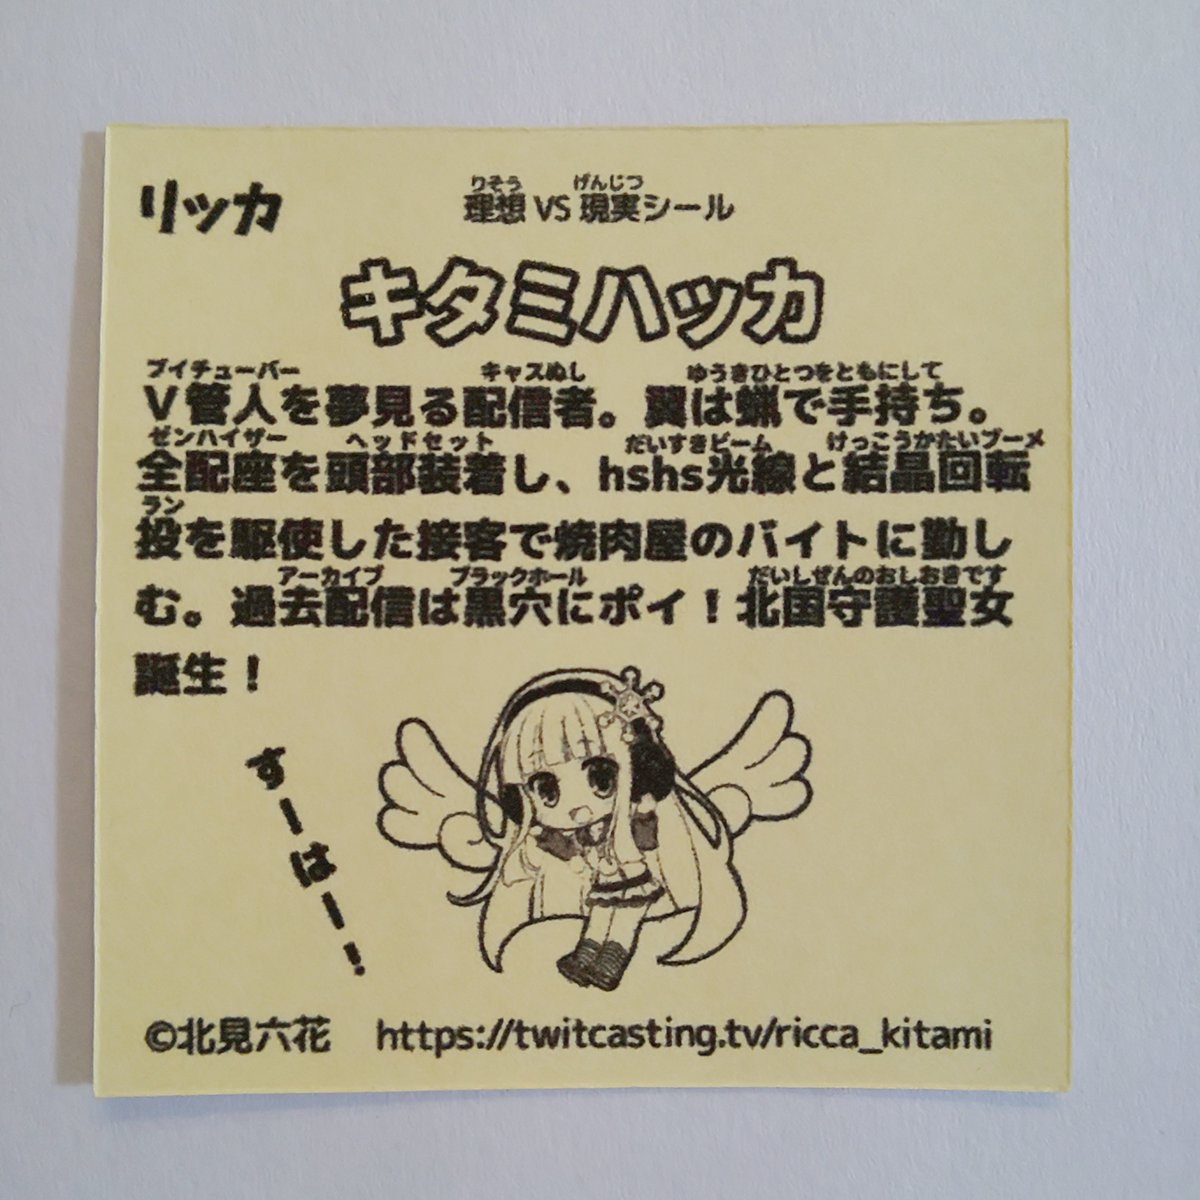 リッカ
りそう げんじつ
理想 VS 現実シール
キタミハッカ
ブイチューバー キャスぬし ゆうきひとつをともにして
V管人を夢見る配信者。翼は蝋で手持ち。
ゼンハイザー ヘッドセット だいすきビーム けっこうかたいブーメ
全配座を頭部装着し、hshs光線と結晶回転
ラン
投を駆使した接客で焼肉屋のバイトに勤し
アーカイブ ブラックホール だいしぜんのおしおきです
む。過去配信は黒穴にポイ！北国守護聖女
誕生！
すーはー！
©北見六花 https://twitcasting.tv/ricca_kitami